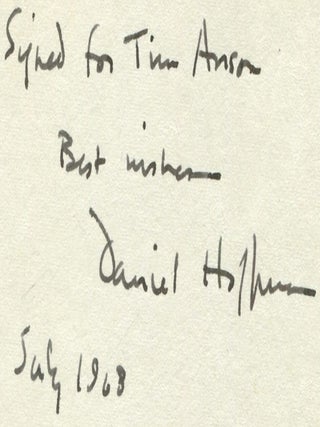 Signed for Tim Anson
Best wishes
Daniel Hoffman
July 1968